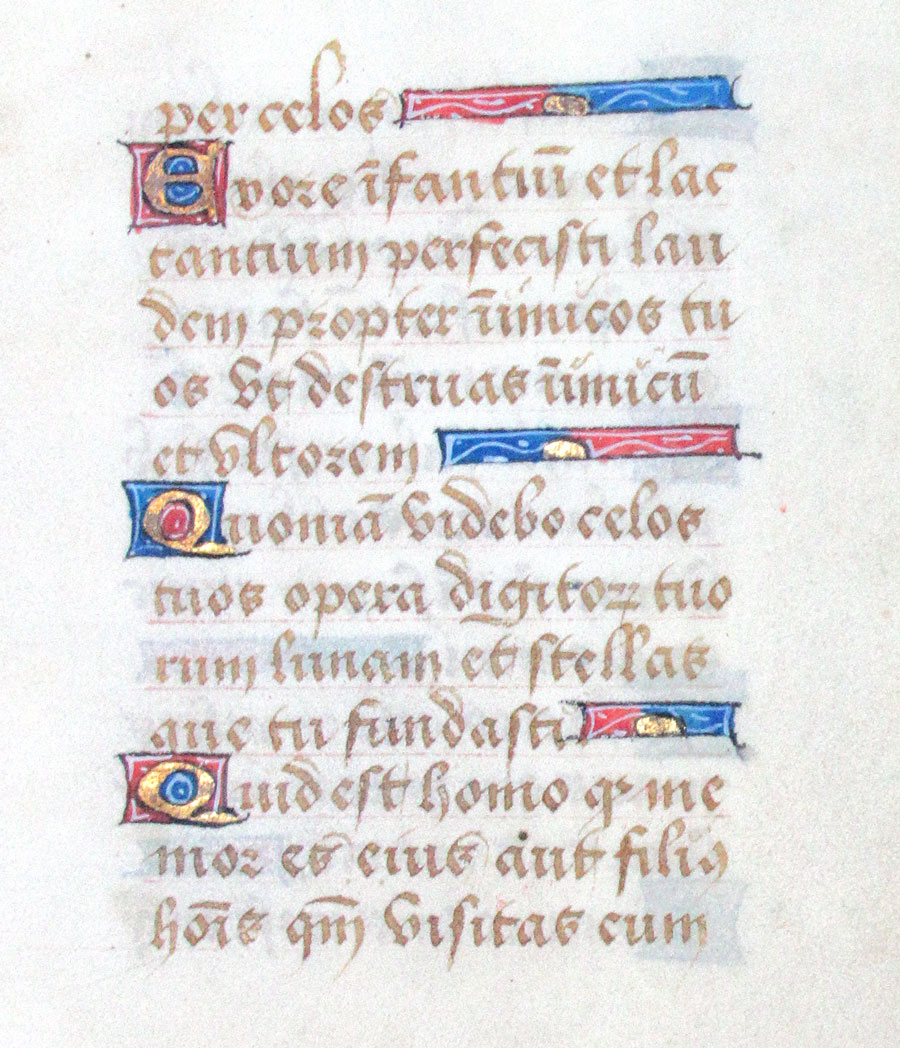 per celos
Ex ore īfantiū et lac
tantium perfecisti lau
dem propter inīmicos tu
os vt destruas inīmicū
et vltorem
Quoniā videbo celos
tuos opera digitoꝝ tuo
rum lunam et stellas
que tu fundasti
Quid est homo ꝙ me
mor es eius aut filiꝯ
hoīs qm̄ visitas eum